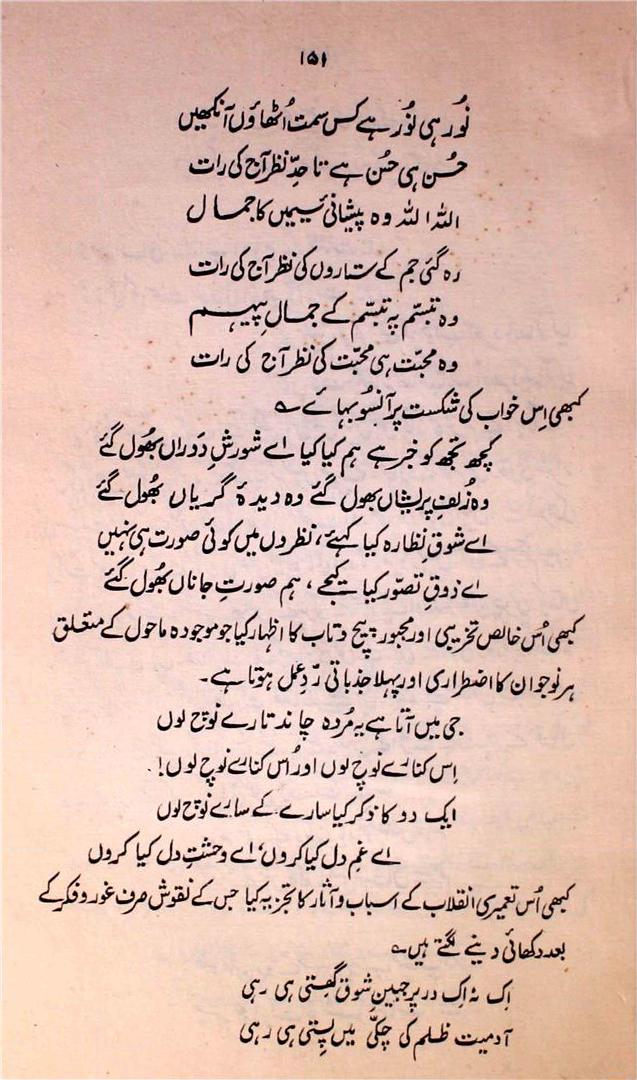 ۱۵۱
نُور ہی نُور ہے کس سمت اُٹھاؤں آنکھیں
حُسن ہی حُسن ہے تا حدِّ نظر آج کی رات
اللہ اللہ وہ پیشانیٔ سیمیں کا جمال
رہ گئی جم کے ستاروں کی نظر آج کی رات
وہ تبسّم پہ تبسّم کے جمالِ پیہم
وہ محبّت ہی محبّت کی نظر آج کی رات
کبھی اِس خواب کی شکست پر آنسُو بہائے ؎
کچھ تجھ کو خبر ہے ہم کیا کیا اے شورشِ دَوراں بھُول گئے
وہ زُلفِ پریشاں بھول گئے وہ دیدۂ گریاں بھُول گئے
اے شوقِ نظارہ کیا کہئے، نظروں میں کوئی صورت ہی نہیں
اے ذوقِ تصوّر کیا کیجے، ہم صورتِ جاناں بھُول گئے
کبھی اُس خالص تخریبی اور مجبور پیچ و تاب کا اظہار کیا جو موجودہ ماحول کے متعلق
ہر نوجوان کا اضطراری اور پہلا جذباتی ردِّ عمل ہوتا ہے۔
جی میں آتا ہے یہ مُردہ چاند تارے نوچ لوں
اِس کنارے نوچ لوں اور اُس کنارے نوچ لوں!
ایک دو کا ذکر کیا سارے کے سارے نوچ لوں
اے غمِ دل کیا کروں، اے وحشتِ دل کیا کروں
کبھی اُس تعمیری انقلاب کے اسباب و آثار کا تجزیہ کیا جس کے نقوش صرف غور و فکر کے
بعد دکھائی دینے لگتے ہیں ؎
اِک نہ اِک در پر جبینِ شوق گھِستی ہی رہی
آدمیت ظلم کی چکّی میں پِستی ہی رہی